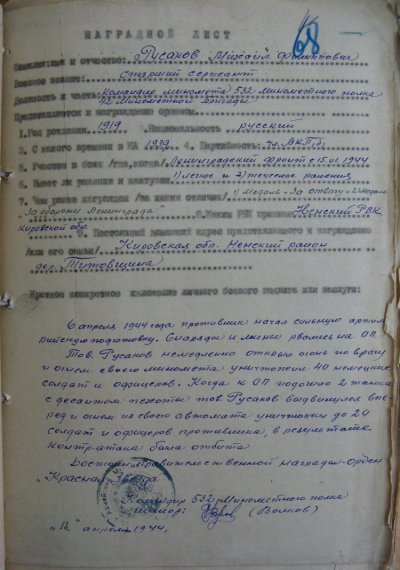 НАГРАДНОЙ ЛИСТ
68
Фамилия, имя и отчество: Русаков Михаил Филиппович
Военное звание: Старший сержант
Должность и часть: командир миномета 532 минометного полка
92 минометной бригады
Представляется к награждению орденом
1. Год рождения 1919 2. Национальность русский
3. С какого времени в КА 1939 4. Партийность: чл. ВКП(б)
5. Участие в боях /где, когда/ Ленинградский фронт с 1944
6. Имеет ли ранения и контузии 1) легкое и 2) тяжелое ранения
7. Чем ранее награжден /за какие отличия/ Медаль "За отвагу"
"За оборону Ленинграда" 8. Каким РВК призван Ненский РВК
Кировской обл.
9. Постоянный домашний адрес представляемого к награждению
/или его семьи/ Кировская обл. Ненский район
дер.
Краткое конкретное изложение личного боевого подвига или заслуги:
6 апреля 1944 года противник начал сильную артил
рийскую подготовку. Снаряды и мины рвались на ОП.
Тов. Русаков немедленно открыл огонь по врагу
и огнем своего миномета уничтожил 40 немецких
солдат и офицеров. Когда к ОП подошло 2 танка
с десантом пехоты тов. Русаков выдвинулся впе-
ред и огнем из своего автомата уничтожил до 20
солдат и офицеров противника, в результате
контр-атака была отбита
Достоин правительственной награды-Орден
"Красная Звезда"
Командир 532 Минометного полка
майор: (Волков)
"12" апреля 1944г.